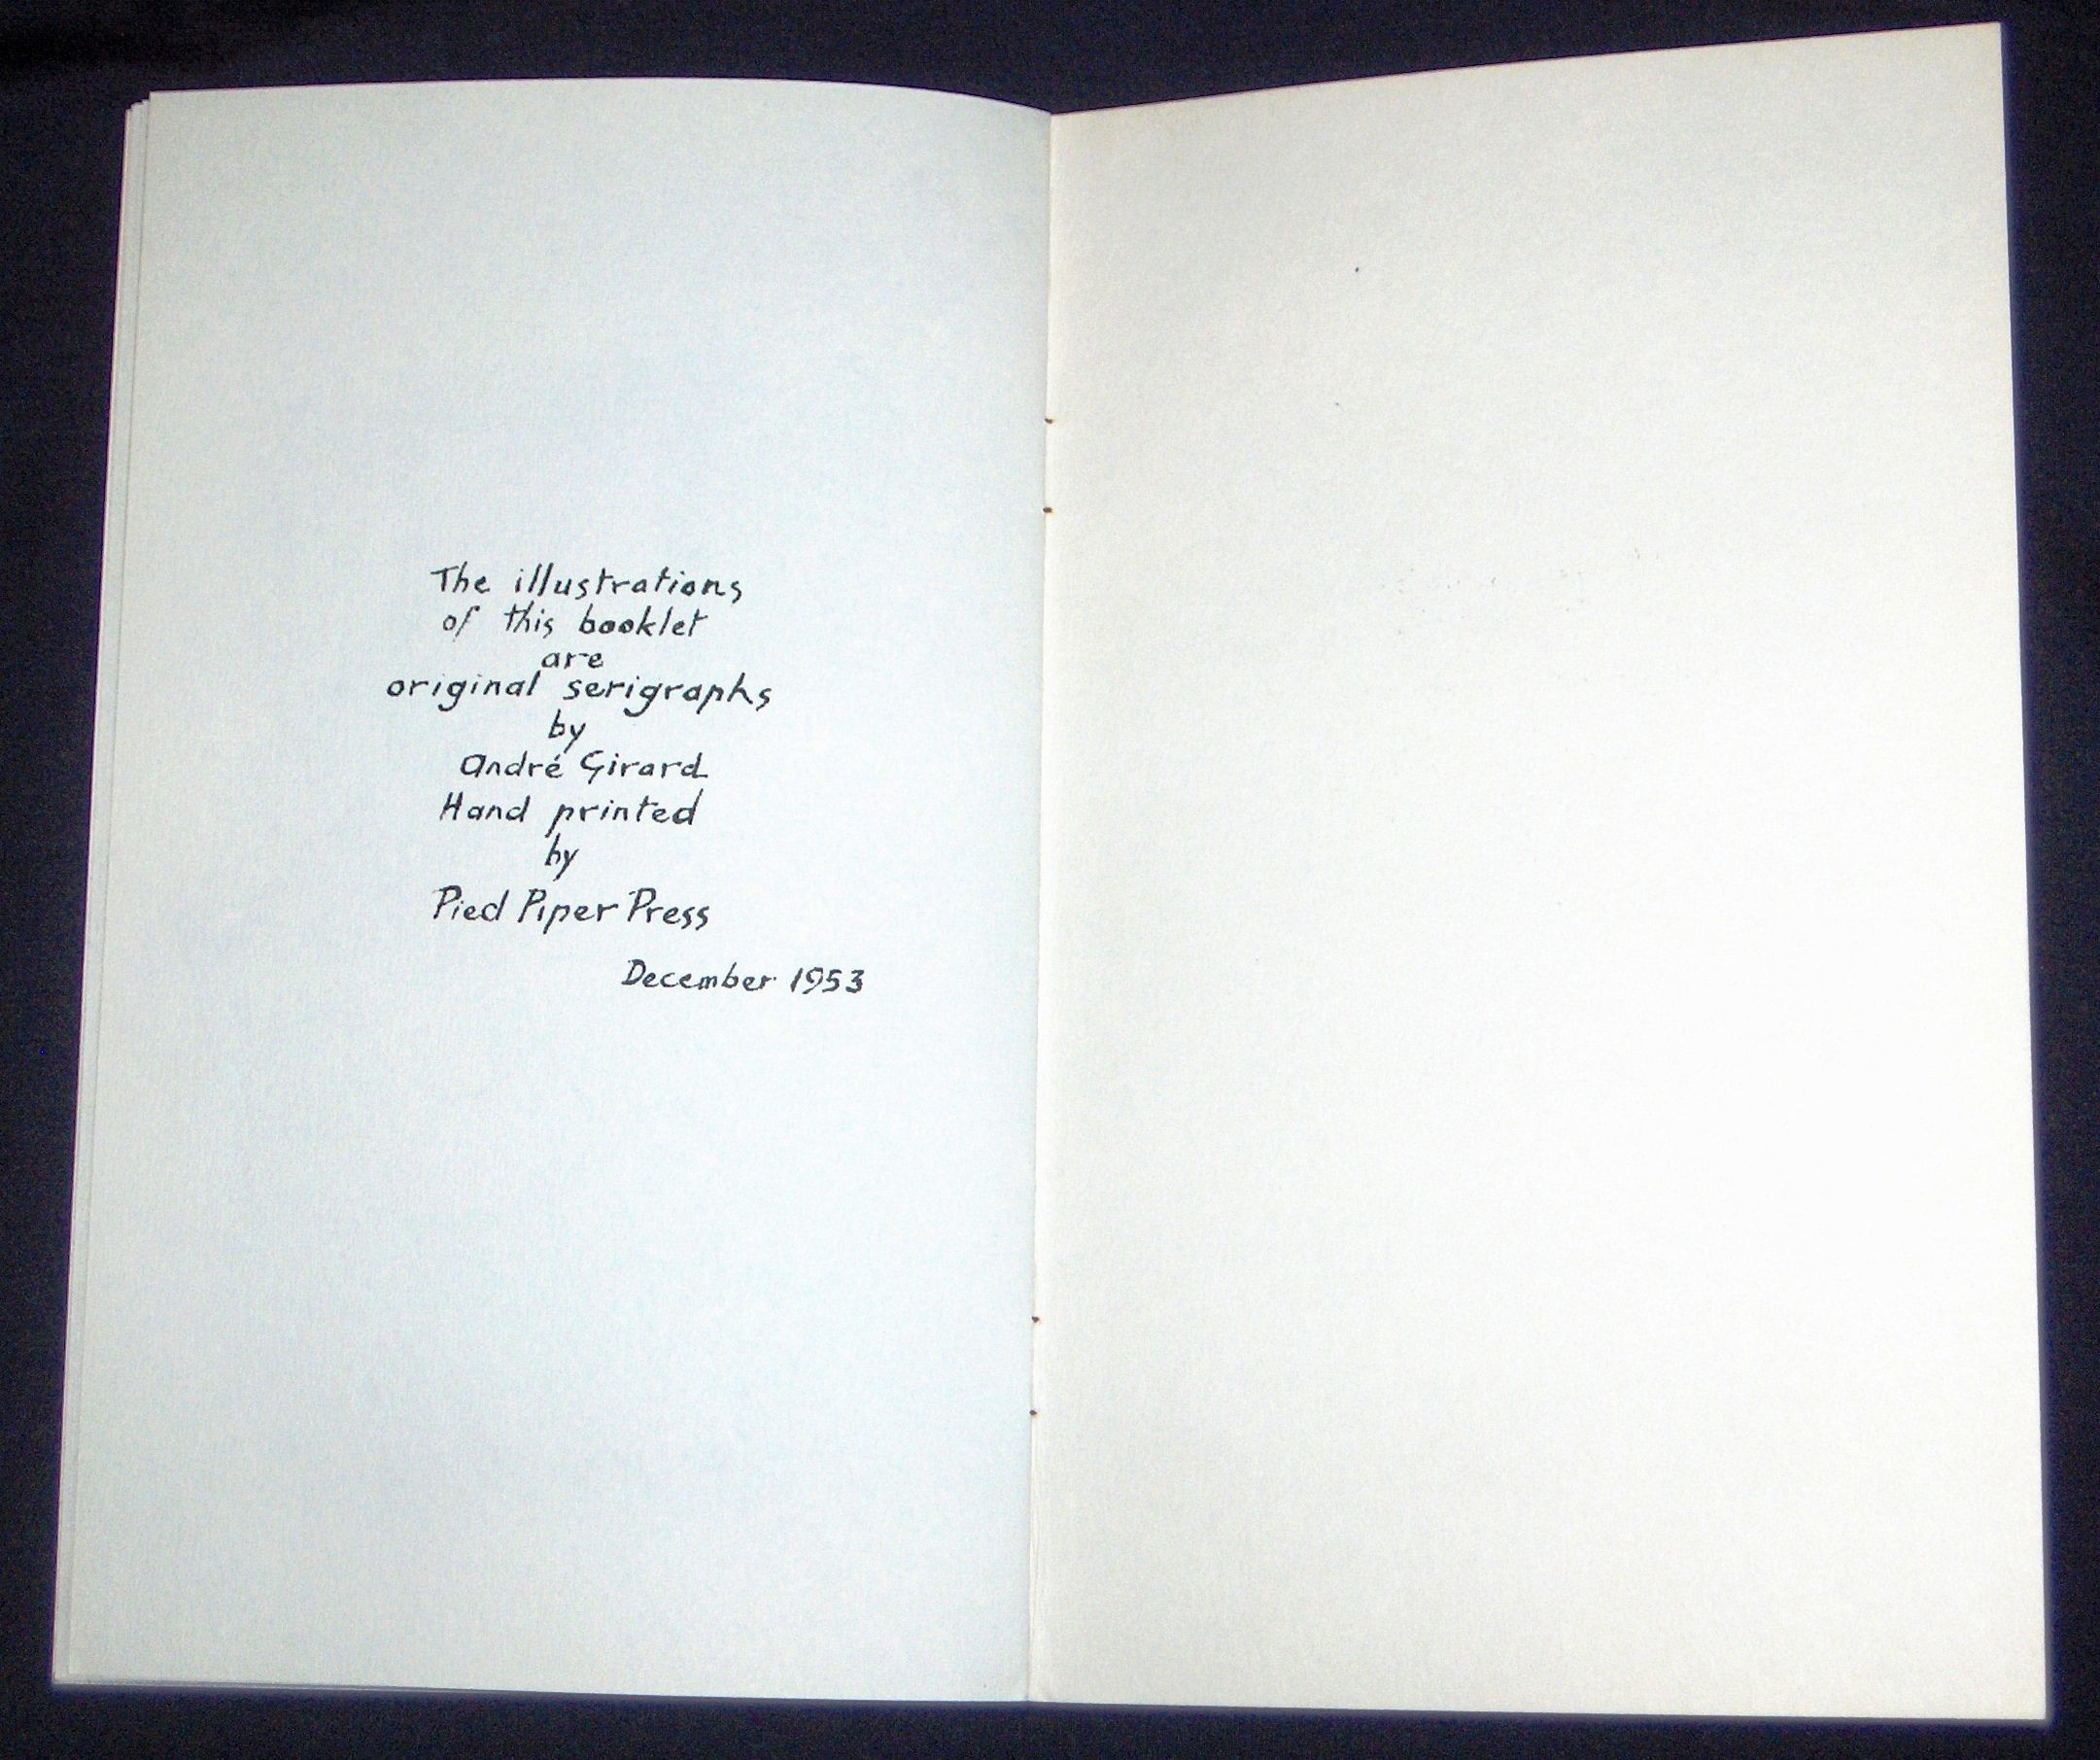 The illustrations
of this booklet
are
original serigraphs
by
André Girard
Hand printed
by
Pied Piper Press
December 1953